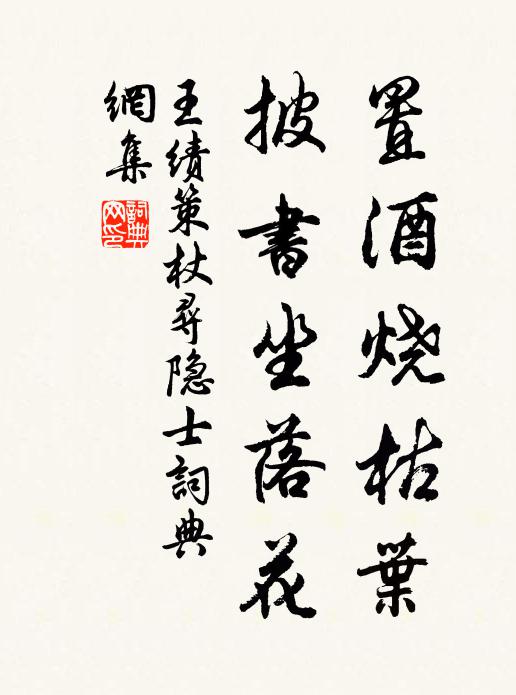 置酒烧枯葉
披書坐落花
王績策杖尋隐士詞典
網集
詞典
网印